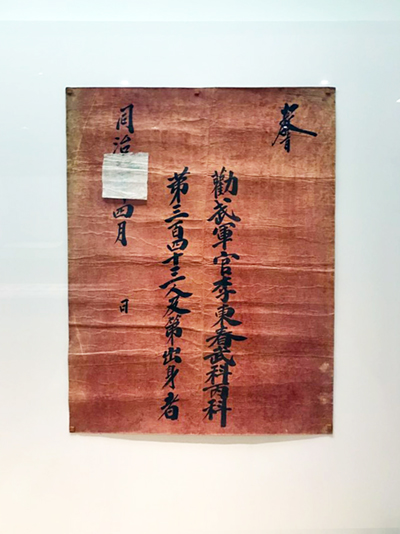 敎旨
勸武軍官李東春武科丙科
第三百四十二人及第出身者
同治 四月 日